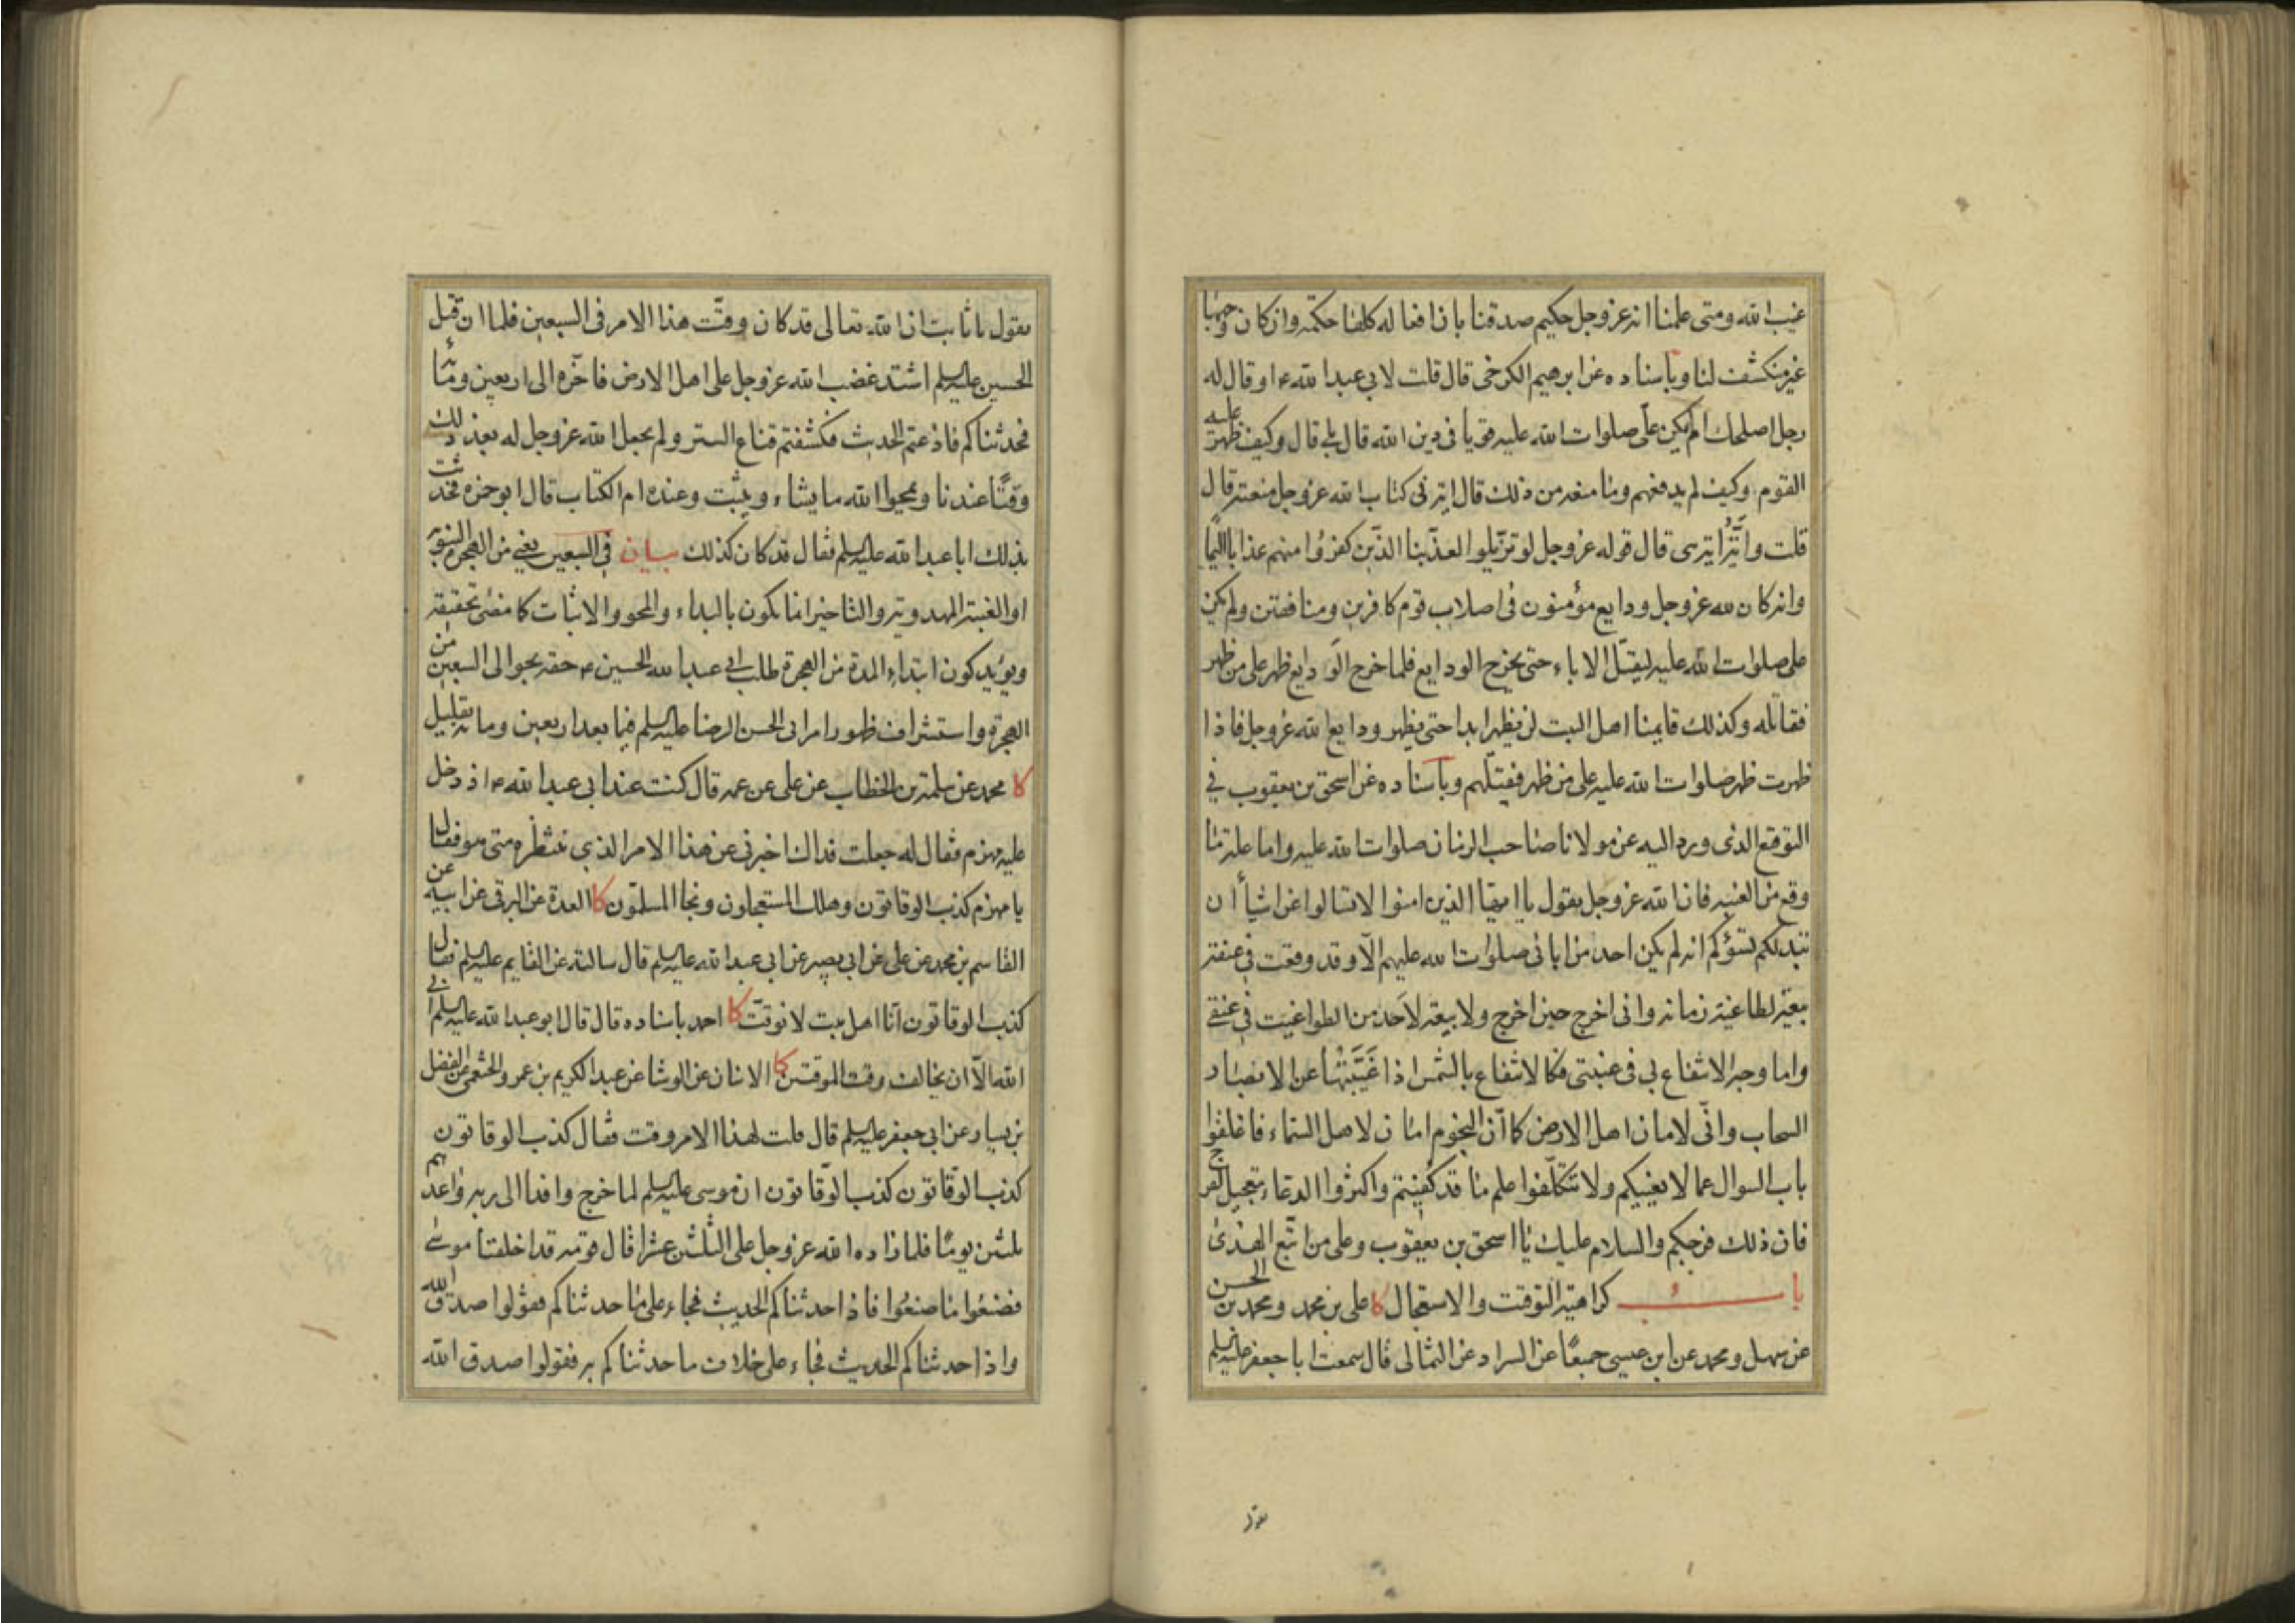 غيب الله ومتى علمنا انه عز وجل حكيم صدقنا بان افعاله كلها حكمة وان كان وجهها
غير منكشف لنا وباسناده عن ابرهيم الكرخى قال قلت لابي عبد الله ع او قال له
رجل اصلحك الم يكن على صلوات الله عليه قويا فى دين الله قال بلى قال وكيف ظهر عليه
القوم وكيف لم يدفعهم وما منعه من ذلك قال اية فى كتاب الله عز وجل منعته قال
قلت واية اية هى قال قوله عز وجل لو تزيلوا لعذبنا الذين كفروا منهم عذابا اليما
وانه كان لله عز وجل ودايع مؤمنون فى اصلاب قوم كافرين ومنافقين ولم يكن
على صلوات الله عليه ليقتل الاباء حتى يخرج الودايع فلما خرج الودايع ظهر على من ظهر
فقاتله وكذلك قايمنا اهل البيت لن يظهر ابدا حتى يظهر ودايع الله عز وجل فاذا
ظهرت ظهر صلوات الله عليه على من ظهر فيقتلهم وباسناده عن اسحق بن يعقوب في
التوقيع الذى ورد اليه عن مولانا صاحب الزمان صلوات الله عليه واما علة ما
وقع من الغيبة فان الله عز وجل يقول يا ايها الذين امنوا لا تسالوا عن اشياء ان
تبد لكم تسؤكم انه لم يكن احد من ابائى صلوات الله عليهم الا وقد وقعت في عنقه
بيعة لطاغية زمانه وانى اخرج حين اخرج ولا بيعة لاحد من الطواغيت في عنقي
واما وجه الانتفاع بي فى غيبتى فكالانتفاع بالشمس اذا غيبتها عن الابصار
السحاب وانى لامان اهل الارض كما ان النجوم امان لاهل السماء فاغلقوا
باب السوال عما لا يعنيكم ولا تتكلفوا علم ما قد كفيتم واكثروا الدعاء بتعجيل الفرج
فان ذلك فرجكم والسلام عليك يا اسحق بن يعقوب وعلى من اتبع الهدى
باب كراهية التوقيت والاستعجال كا على بن محمد ومحمد بن الحسن
عن سهل ومحمد عن ابن عيسى جميعا عن السراد عن الثمالى قال سمعت ابا جعفر عليه السلم
يقول
يقول يا ثابت ان الله تعالى قد كان وقت هذا الامر فى السبعين فلما ان قتل
الحسين عليه السلم اشتد غضب الله عز وجل على اهل الارض فاخره الى اربعين ومائة
فحدثناكم فاذعتم الحديث فكشفتم قناع الستر ولم يجعل الله عز وجل له بعد ذلك
وقتا عندنا ويمحوا الله ما يشاء ويثبت وعنده ام الكتاب قال ابو حمزه فحدثت
بذلك ابا عبد الله عليه السلم فقال قد كان كذلك بيان في السبعين يعني من الهجرة النبوية
او الغيبة المهدوية والتاخير انما يكون بالبداء والمحو والاثبات كما مضى تحقيقه
ويؤيد كون ابتداء المدة من الهجرة طلب ابي عبد الله الحسين ع حقه بحوالى السبعين من
الهجرة واستشراف ظهور امر ابى الحسن الرضا عليه السلم فيما بعد اربعين ومائة بقليل
كا محمد عن سلمة بن الخطاب عن على عن عمه قال كنت عند ابي عبد الله ع اذ دخل
عليه مهزم فقال له جعلت فداك اخبرنى عن هذا الامر الذي ننتظره متى هو فقال
يا مهزم كذب الوقاتون وهلك المستعجلون ونجا المسلمون كا العدة عن البرقى عن ابيه عن
القاسم بن محمد عن على عن ابي بصير عن ابى عبد الله عليه السلم قال سالته عن القايم عليه السلم فقال
كذب الوقاتون انا اهل بيت لا نوقت كا احمد باسناده قال قال ابو عبد الله عليه السلم ابى
الله الا ان يخالف وقت الموقتين كا الاثنان عن الوشا عن عبد الكريم بن عمرو الخثعمي عن الفضل
بن يسار عن ابى جعفر عليه السلم قال قلت لهذا الامر وقت فقال كذب الوقاتون
كذب الوقاتون كذب الوقاتون ان موسى عليه السلم لما خرج وافدا الى ربه واعدهم
ثلثين يوما فلما زاده الله عز وجل على الثلثين عشرا قال قومه قد اخلفنا موسى
فصنعوا ما صنعوا فاذا حدثناكم الحديث فجاء على ما حدثناكم فقولوا صدق الله
واذا حدثناكم الحديث فجاء على خلاف ما حدثناكم به فقولوا صدق الله